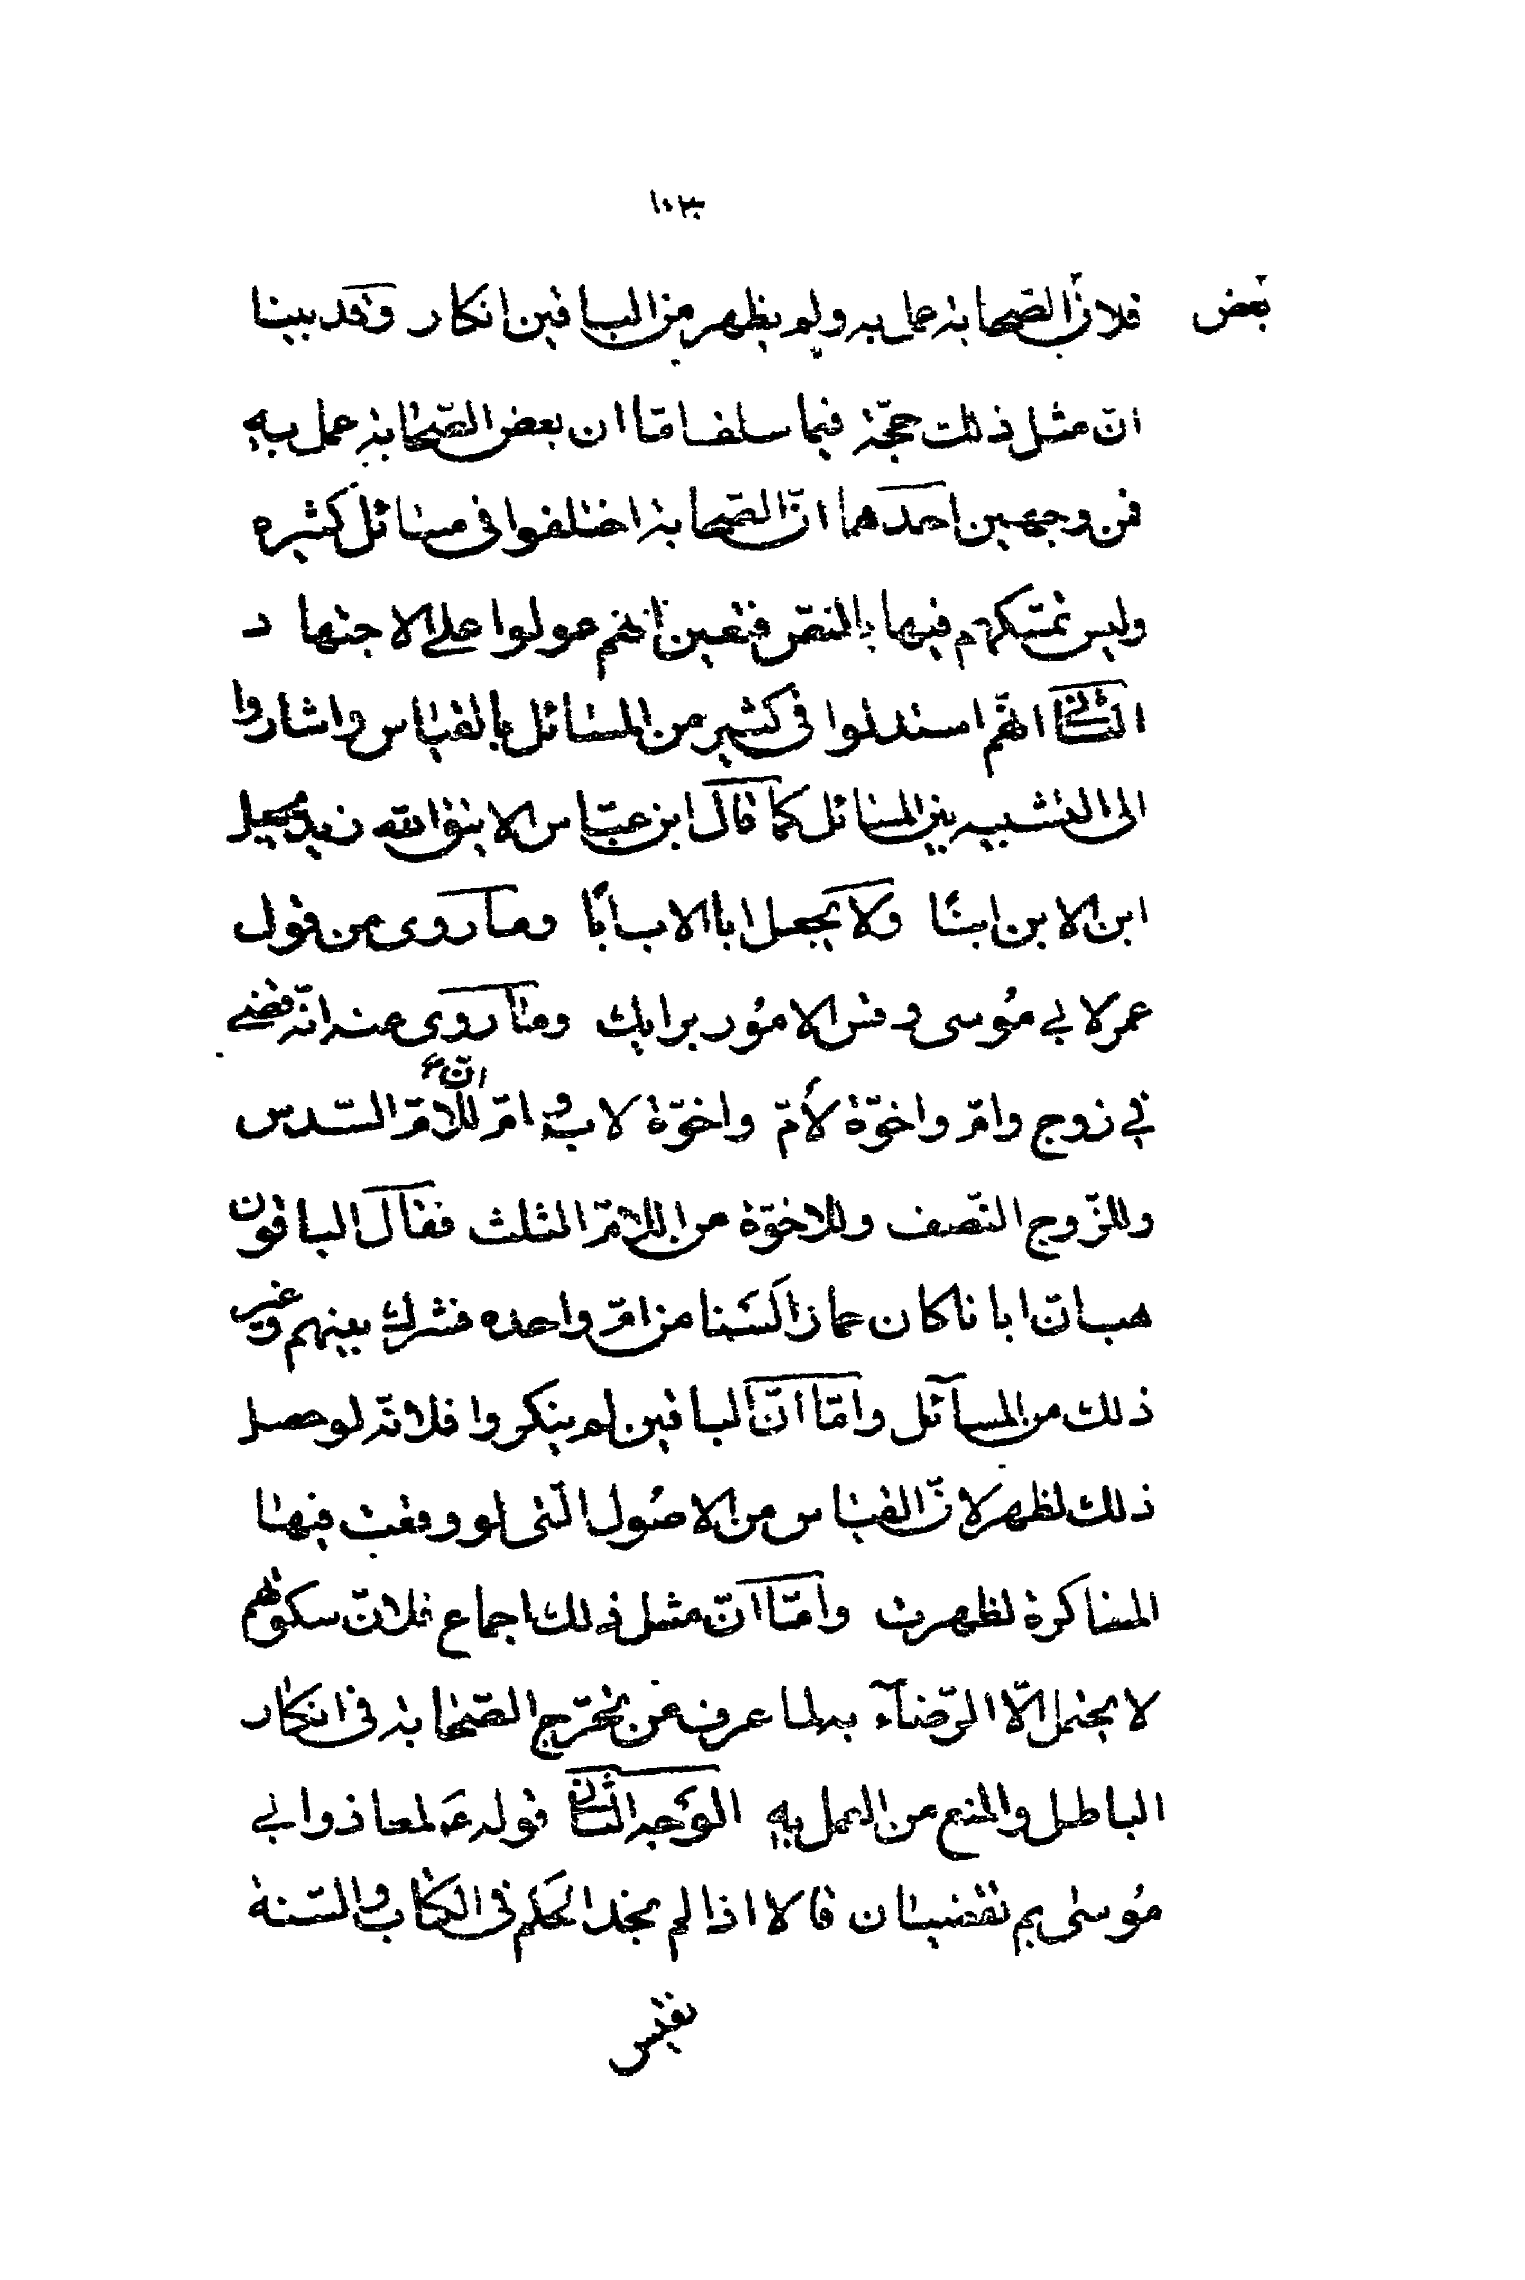 ١٠٣
بعض
فلانّ الصّحابة عمل به ولم يظهر من الباقين انكار وقد بينا
انّ مثل ذلك حجّة فيما سلف امّا ان بعض الصّحابة عمل به
فمن وجهين احدهما انّ الصّحابة اختلفوا فى مسائل كثيره
وليس تمسّكهم فيها بالنصّ فتعين انهم عولوا على الاجتهاد
الثانى انهّم استدلوا فى كثير من المسائل بالقياس واشاروا
الى التشبيه بين المسائل كما قال ابن عبّاس الا يتق الله زيد يجعل
ابن الابن ابنًا ولا يجعل ابا الاب ابًا وما روى من قول
عمر لابي مُوسى و قس الامُور برايك وما روى عنه انّه قضى
في زوج وامّ واخوّة لأمّ واخوّة لاب وامّ انّ للامّ السّدس
وللزّوج النّصف وللاخوّة من الامّ الثلث فقال الباقون
هب انّ ابانا كان حمارا لَسَنا من امّ واحده فشرك بينهم وغير
ذلك من المسآئل وامّا انّ الباقين لم ينكروا فلانّه لو حصل
ذلك لظهر لانّ القياس من الاصُول الّتى لو وقعت فيها
المناكرة لظهرت وامّا انّ مثل ذلك اجماع فلانّ سكوتهم
لا يحتمل الّا الرّضآء به لما عرف من تحرّج الصّحابة فى انكار
الباطل والمنع من العمل به الوَجه الثانى قوله عَ لمعاذ وابي
مُوسٰى بم تقضيان قالا اذا لم نجد الحكم فى الكتاب والسّنة
نقيس